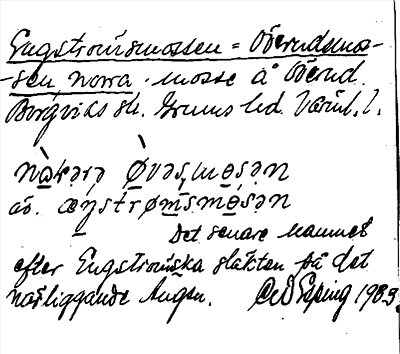 Engströmsmossen = Överudsmos-
-sen norra. mosse å Överud.
Borgviks sn. Grums hd. Värml. l.
nɷ̀kərə Ø̀vəs,mɵsən
äv. æŋstrømsmɵ́sən
Det senare namnet
efter Engströmska släkten på det
närliggande Augen. 1983.